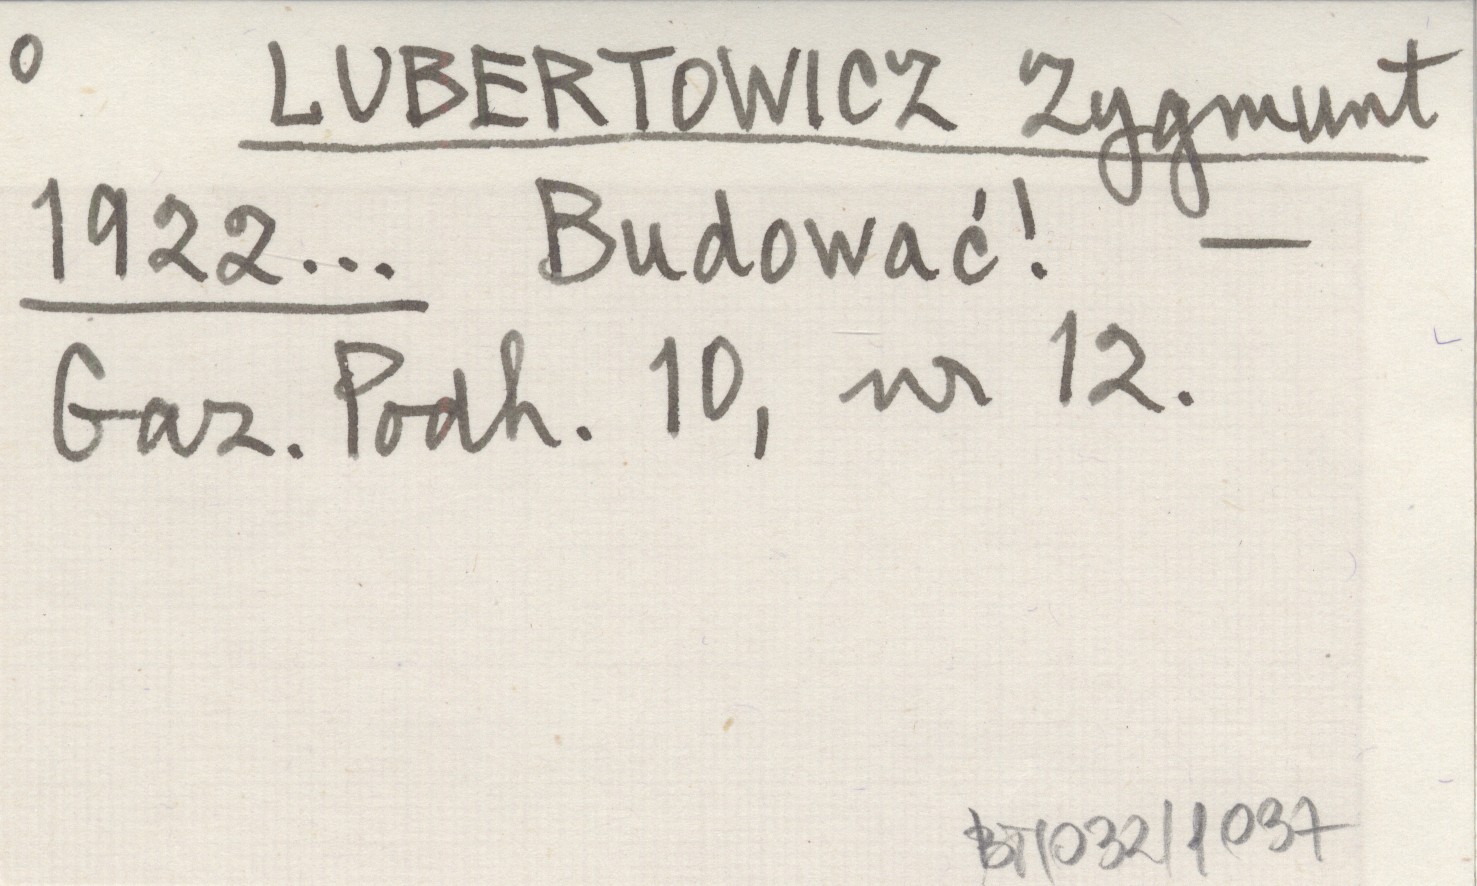 o LUBERTOWICZ Zygmunt
1922... Budować! —
Gaz. Podh. 10, nr 12.
BT/032/1037